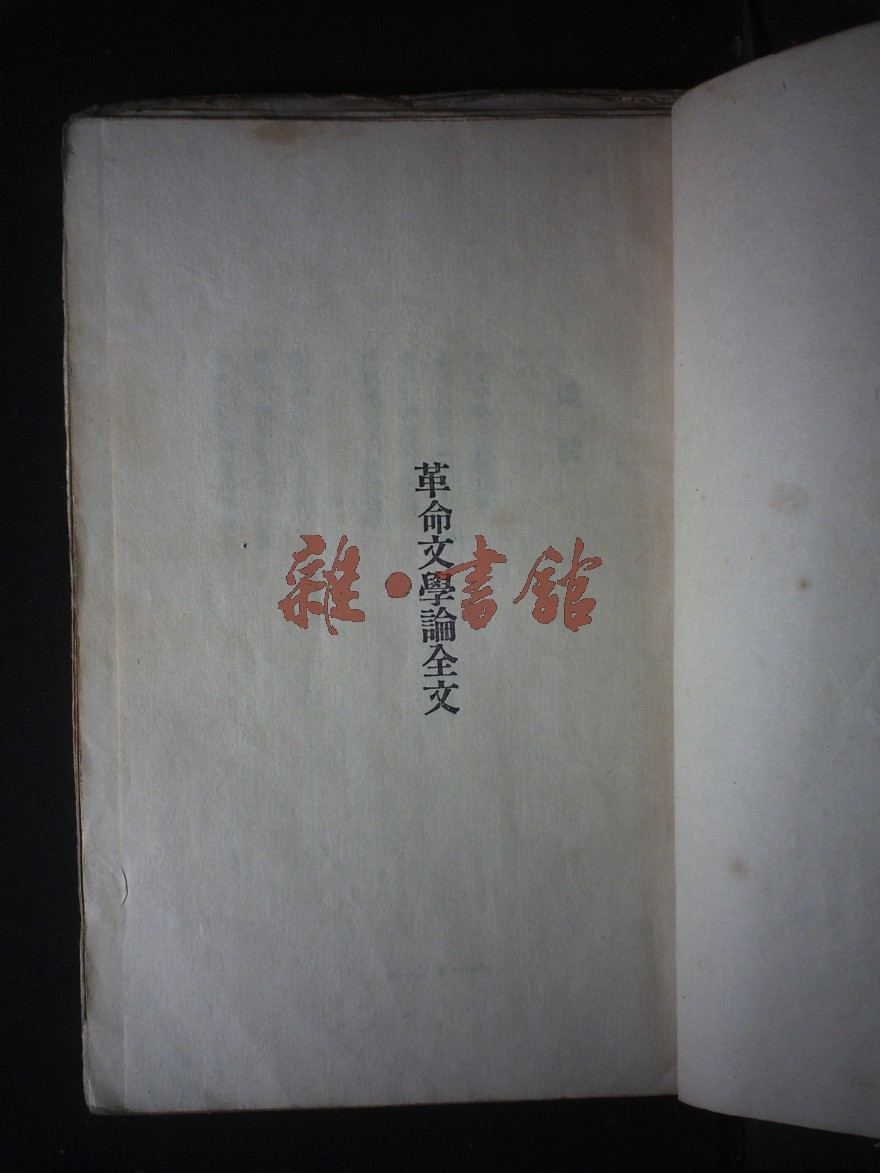 革命文學論全文
雜·書館